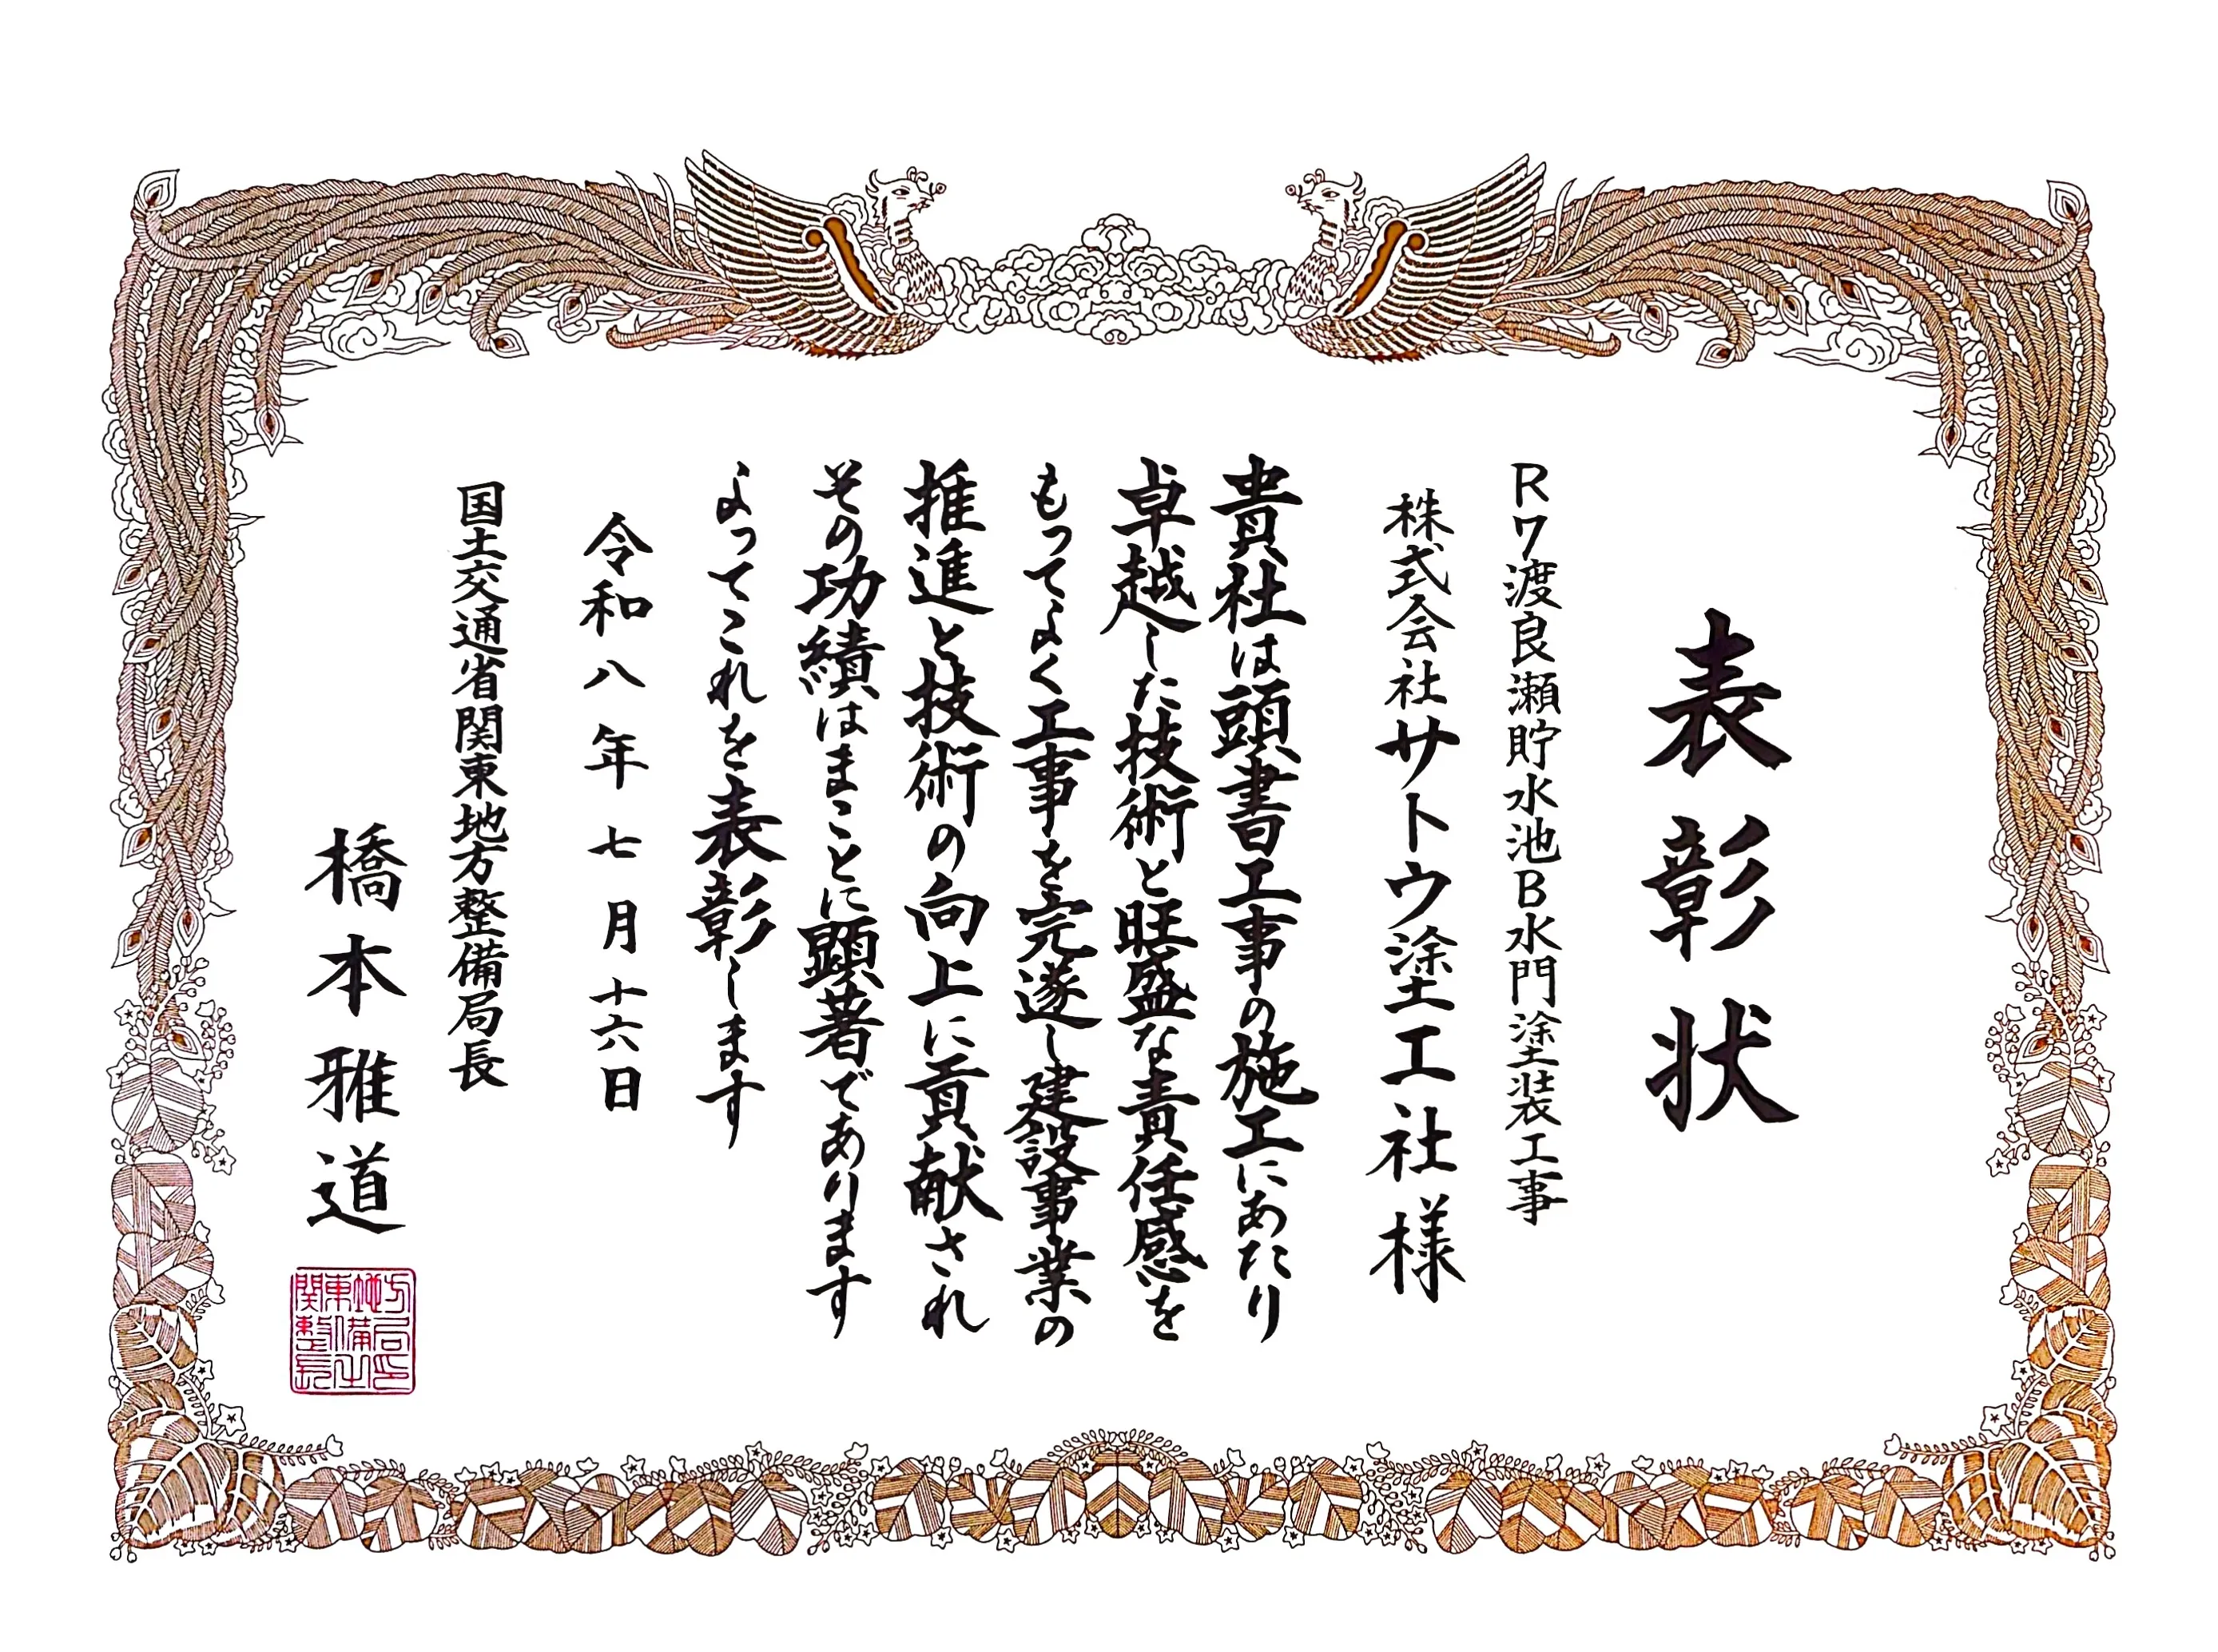 表彰状
R7渡良瀬貯水池B水門塗装工事
株式会社サトウ塗工社様
貴社は頭書工事の施工にあたり
卓越した技術と旺盛な責任感を
もってよく工事を完遂し建設事業の
推進と技術の向上に貢献され
その功績はまことに顕著であります
よってこれを表彰します
令和八年七月十六日
国土交通省関東地方整備局長
橋本雅道